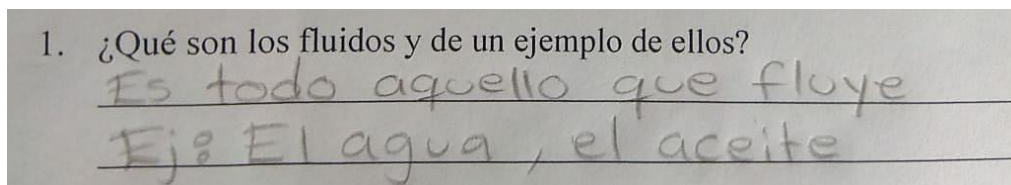 1. ¿Qué son los fluidos y de un ejemplo de ellos?
Es todo aquello que fluye
Ej: El agua, el aceite